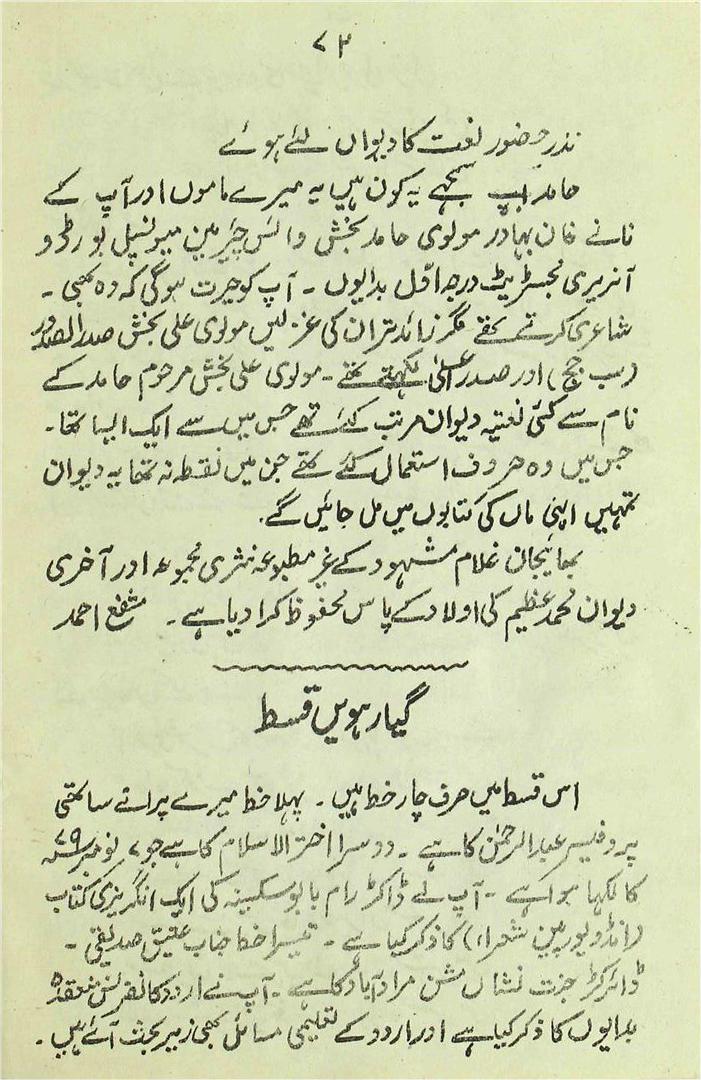 ۷۳
نذرِ حضور نعت کا دیواں لئے ہوئے
حامد اب سمجہے یہ کون ہیں یہ میرے ماموں اور آپ کے
نانے خان بہادر مولوی حامد بخش وائس چیرمین میونسپل بورڈ و
آنریری مجسٹریٹ درجہ اوّل بدایوں ۔ آپ کو حیرت ہوگی کہ وہ بھی ۔
شاعری کرتے تھے مگر زائد تر ان کی غزلیں مولوی علی بخش صدر الصدور
(سب جج) اور صدر اعلیٰ لکہتے تھے ۔ مولوی علی بخش مرحوم حامد کے
نام سے کئی نعتیہ دیوان مرتب کئے تھے جس میں سے ایک ایسا تھا ۔
جس میں وہ حروف استعمال کئے تھے جن میں نقطہ نہ تھا یہ دیوان
تمہیں اپنی ماں کی کتابوں میں مل جائیں گے ۔
بھائیجان غلام مشہود کے غیر مطبوعہ نثری مجموعہ اور آخری
دیوان محمد عظیم کی اولاد کے پاس محفوظ کرا دیا ہے ۔ شفیع احمد
گیارہویں قسط
اس قسط میں صرف چار خط ہیں ۔ پہلا خط میرے پرانے ساتھی
پروفیسر عبدالرحمٰن کا ہے ۔ دوسرا اختر الاسلام کا ہے جو ۷ نومبر ۷۹ سنہ
کا لکہا ہوا ہے ۔ آپ نے ڈاکٹر رام بابو سکسینہ کی ایک انگریزی کتاب
(انڈو یورپین شعراء) کا ذکر کیا ہے ۔ تیسرا خط جناب عتیق صدیقی ۔
ڈائرکٹر جنت نشاں مشن مرادآباد کا ہے ۔ آپ نے اردو کانفرنس منعقدہ
بدایوں کا ذکر کیا ہے اور اردو کے تعلیمی مسائل بھی زیر بحث آئے ہیں ۔